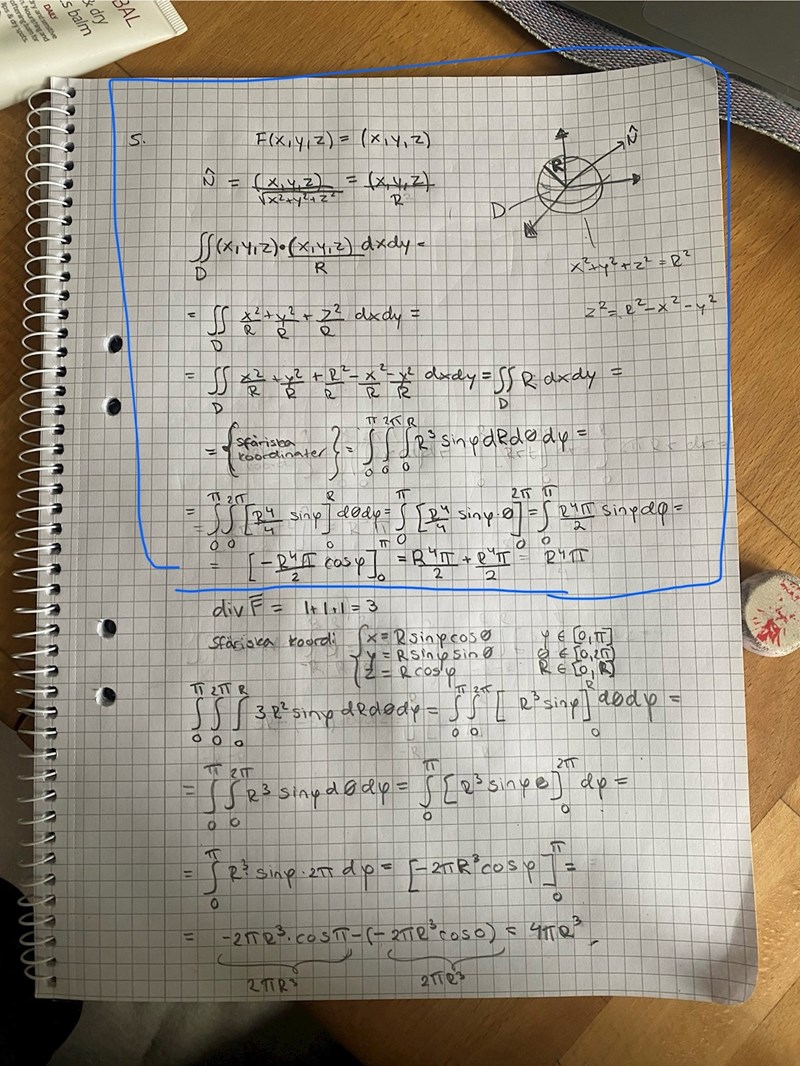 BAL
& dry
s balm
DAILY
5.
F(x,y,z) = (x,y,z)
N̂ = (x,y,z)/√(x²+y²+z²) = (x,y,z)/R
R
N̂
D
x²+y²+z² = R²
z² = R²-x²-y²
∬_D (x,y,z)•(x,y,z)/R dxdy =
= ∬_D x²/R + y²/R + z²/R dxdy =
= ∬_D x²/R + y²/R + R²/R - x²/R - y²/R dxdy = ∬_D R dxdy =
= {sfäriska koordinater} = ∫_0^π ∫_0^2π ∫_0^R R³ sinφ dR dθ dφ =
= ∫_0^π ∫_0^2π [R⁴/4 sinφ]_0^R dθdφ = ∫_0^π [R⁴/4 sinφ·θ]_0^2π = ∫_0^π R⁴π/2 sinφ dφ =
= [-R⁴π/2 cosφ]_0^π = R⁴π/2 + R⁴π/2 = R⁴π
div F̅ = 1+1+1 = 3
Sfäriska koordi {x = R sinφ cosθ φ ∈ [0,π]
y = R sinφ sinθ θ ∈ [0,2π]
z = R cosφ R ∈ [0,R]
∫_0^π ∫_0^2π ∫_0^R 3R² sinφ dR dθ dφ = ∫_0^π ∫_0^2π [R³ sinφ]_0^R dθ dφ =
= ∫_0^π ∫_0^2π R³ sinφ dθ dφ = ∫_0^π [R³ sinφ θ]_0^2π dφ =
= ∫_0^π R³ sinφ · 2π dφ = [-2πR³ cosφ]_0^π =
= -2πR³·cosπ - (-2πR³ cos0) = 4πR³
2πR³ 2πR³